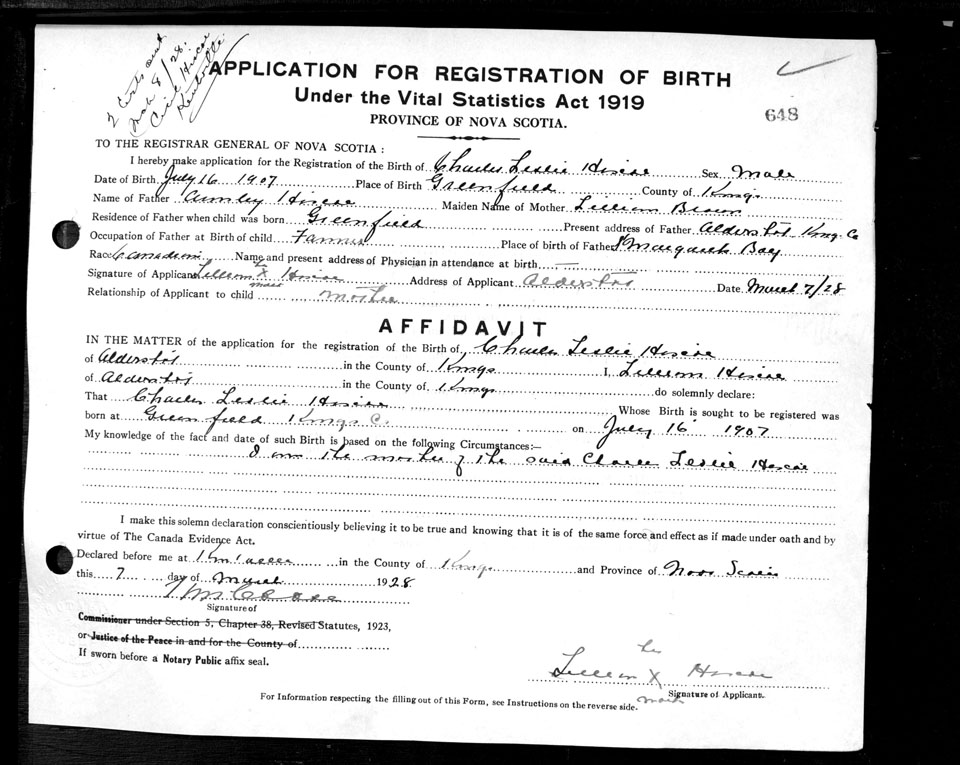 2 Certs sent
Mar 8/28.
Hiscoe
Kentville
APPLICATION FOR REGISTRATION OF BIRTH
Under the Vital Statistics Act 1919
648
PROVINCE OF NOVA SCOTIA.
TO THE REGISTRAR GENERAL OF NOVA SCOTIA :
I hereby make application for the Registration of the Birth of Charles Leslie Hiscoe Sex Male
Date of Birth July 16 1907 Place of Birth Greenfield County of Kings
Name of Father Hiscoe Maiden Name of Mother Lillian
Residence of Father when child was born Greenfield Present address of Father Aldershot Kings Co
Occupation of Father at Birth of child Farmer Place of birth of Father St Margarets Bay
Race Canadian Name and present address of Physician in attendance at birth —
Signature of Applicant Lillian her X mark Hiscoe Address of Applicant Aldershot Date March 7/28
Relationship of Applicant to child Mother
AFFIDAVIT
IN THE MATTER of the application for the registration of the Birth of, Charles Leslie Hiscoe
of Aldershot in the County of Kings I, Lillian Hiscoe
of Aldershot in the County of Kings do solemnly declare:
That Charles Leslie Hiscoe Whose Birth is sought to be registered was
born at Greenfield Kings C. on July 16 1907
My knowledge of the fact and date of such Birth is based on the following Circumstances:—
I am the mother of the said Charles Leslie Hiscoe
I make this solemn declaration conscientiously believing it to be true and knowing that it is of the same force and effect as if made under oath and by
virtue of The Canada Evidence Act.
Declared before me at Kentville in the County of Kings and Province of Nova Scotia
this 7 day of March 1928
Signature of
Commissioner under Section 5, Chapter 38, Revised Statutes, 1923,
or Justice of the Peace in and for the County of
If sworn before a Notary Public affix seal.
her
Lillian X Hiscoe
mark
Signature of Applicant.
For Information respecting the filling out of this Form, see Instructions on the reverse side.